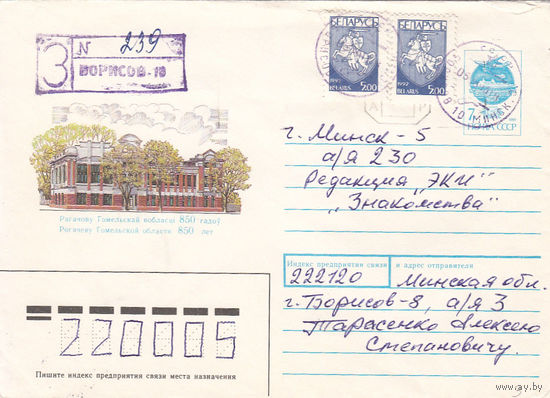 З
N 239
БОРИСОВ-10
БЕЛАРУСЬ
1992
5.00
BELARUS
БЕЛАРУСЬ
1992
5.00
BELARUS
ПОЧТА СССР
МИНСК
г. Минск - 5
а/я 230
Редакция „ЭКИ"
„Знакомства"
Рагачову Гомельскай вобласці 850 гадоў
Рогачеву Гомельской области 850 лет
Индекс предприятия связи и адрес отправителя
222120 Минская обл.
г. Борисов-8, а/я 3
Тарасенко Алексею
Степановичу.
220005
Пишите индекс предприятия связи места назначения
https://www.ay.by/